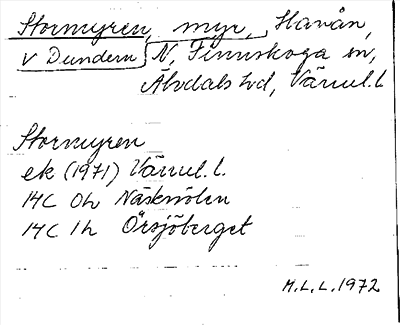 Stormyren, myr, Havån,
v Dundern N, Finnskoga sn,
Älvdals hd, Värml. l.
Stormyren
ek (1971) Värml. l.
14C 0h Näsknölen
14C 1h Örsjöberget
M.L.L. 1972